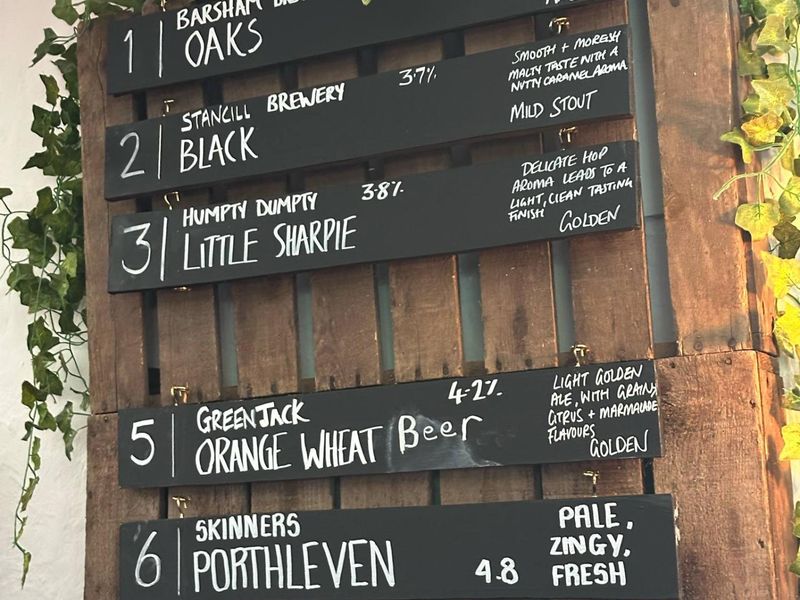 1 BARSHAM
OAKS
2 STANCILL BREWERY 3.7%
BLACK
SMOOTH + MORESH
MALTY TASTE WITH A
NUTTY CARAMEL AROMA
MILD STOUT
3 HUMPTY DUMPTY 3.8%
LITTLE SHARPIE
DELICATE HOP
AROMA LEADS TO A
LIGHT, CLEAN TASTING
FINISH GOLDEN
5 GREENJACK 4.2%
ORANGE WHEAT Beer
LIGHT GOLDEN
ALE, WITH GRAIN,
CITRUS + MARMALADE
FLAVOURS
GOLDEN
6 SKINNERS
PORTHLEVEN 4.8
PALE,
ZINGY,
FRESH